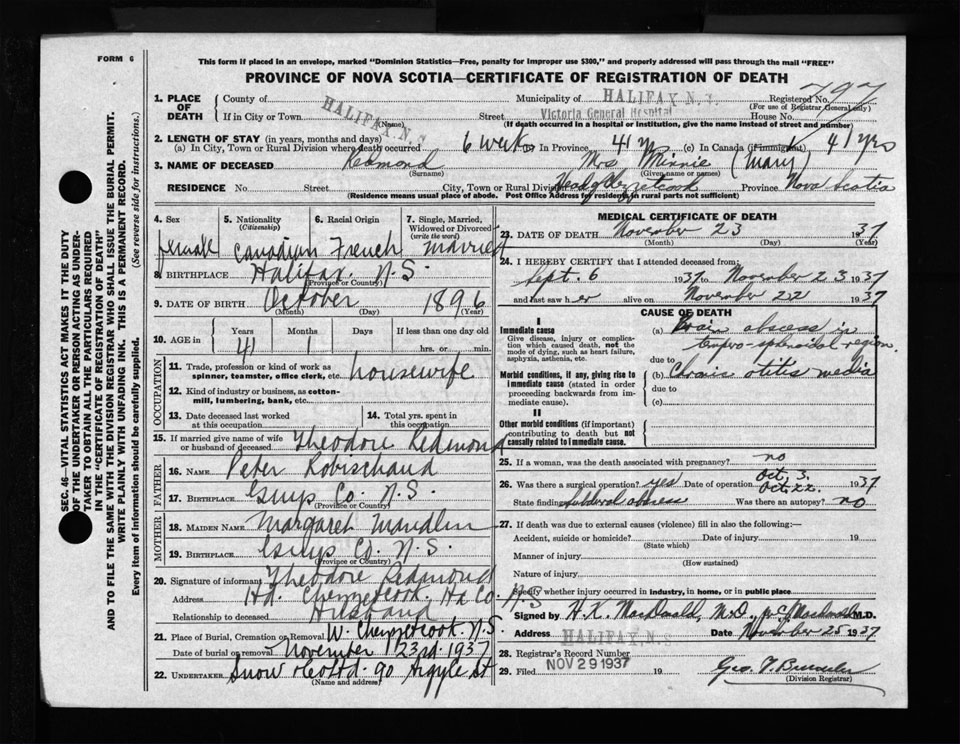 FORM 6
This form if placed in an envelope, marked "Dominion Statistics—Free, penalty for improper use $300," and properly addressed will pass through the mail "FREE"
PROVINCE OF NOVA SCOTIA—CERTIFICATE OF REGISTRATION OF DEATH
SEC. 46—VITAL STATISTICS ACT MAKES IT THE DUTY
OF THE UNDERTAKER OR PERSON ACTING AS UNDER-
TAKER TO OBTAIN ALL THE PARTICULARS REQUIRED
IN THE "CERTIFICATE OF REGISTRATION OF DEATH"
AND TO FILE THE SAME WITH THE DIVISION REGISTRAR WHO SHALL ISSUE THE BURIAL PERMIT.
WRITE PLAINLY WITH UNFADING INK. THIS IS A PERMANENT RECORD.
Every item of information should be carefully supplied. (See reverse side for instructions.)
1. PLACE OF DEATH County of HALIFAX N.S. Municipality of HALIFAX N.S. Registered No. 797
(For use of Registrar General only)
If in City or Town (Name) Street Victoria General Hospital House No.
(If death occurred in a hospital or institution, give the name instead of street and number)
2. LENGTH OF STAY (in years, months and days)
(a) In City, Town or Rural Division where death occurred 6 weeks (b) In Province 41 y (c) In Canada (if immigrant) 41 yrs
3. NAME OF DECEASED Redmond Mrs Minnie (Mary)
(Surname) (Given name or names)
RESIDENCE No. Street City, Town or Rural Division Chezzetcook Province Nova Scotia
(Residence means usual place of abode. Post Office Address for residency in rural parts not sufficient)
4. Sex 5. Nationality (Citizenship) 6. Racial Origin 7. Single, Married, Widowed or Divorced (write the word)
female Canadian French married
8. BIRTHPLACE Halifax N.S.
(Province or Country)
9. DATE OF BIRTH October 1896
(Month) (Day) (Year)
10. AGE in Years Months Days If less than one day old
41 1 hrs. or min.
OCCUPATION
11. Trade, profession or kind of work as spinner, teamster, office clerk, etc. housewife
12. Kind of industry or business, as cotton-mill, lumbering, bank, etc.
13. Date deceased last worked at this occupation 14. Total yrs. spent in this occupation
15. If married give name of wife or husband of deceased Theodore Redmond
FATHER
16. NAME Peter Robischaud
17. BIRTHPLACE Guys Co. N.S.
(Province or Country)
MOTHER
18. MAIDEN NAME Margaret Mandlin
19. BIRTHPLACE Guys Co. N.S.
(Province or Country)
20. Signature of informant Theodore Redmond
Address Hd. Chezzetcook Hx Co. N.S
Relationship to deceased Husband
21. Place of Burial, Cremation or Removal W. Chezzetcook N.S.
Date of burial or removal November 23rd 1937
22. UNDERTAKER Snow & Co Ltd 90 Argyle St
(Name and address)
MEDICAL CERTIFICATE OF DEATH
23. DATE OF DEATH November 23 1937
(Month) (Day) (Year)
24. I HEREBY CERTIFY that I attended deceased from:
Sept. 6 1937 to November 23 1937
and last saw her alive on November 22 1937
CAUSE OF DEATH
I
Immediate cause
Give disease, injury or complication which caused death, not the mode of dying, such as heart failure, asphyxia, asthenia, etc.
(a) Brain abscess in
temporo-sphenoidal region
due to
Morbid conditions, if any, giving rise to immediate cause (stated in order proceeding backwards from immediate cause).
(b) Chronic otitis media
due to
(c)
II
Other morbid conditions (if important) contributing to death but not causally related to immediate cause.
25. If a woman, was the death associated with pregnancy? no
26. Was there a surgical operation? yes Date of operation Oct. 3. Oct. 22. 1937
State finding abscess Was there an autopsy? no
27. If death was due to external causes (violence) fill in also the following:—
Accident, suicide or homicide? Date of injury 19
(State which)
Manner of injury
(How sustained)
Nature of injury
Specify whether injury occurred in industry, in home, or in public place
Signed by H.K. MacDonald, M.D. M.D.
Address HALIFAX N.S Date November 25 1937
28. Registrar's Record Number
29. Filed NOV 29 1937 Geo. T.
(Division Registrar)